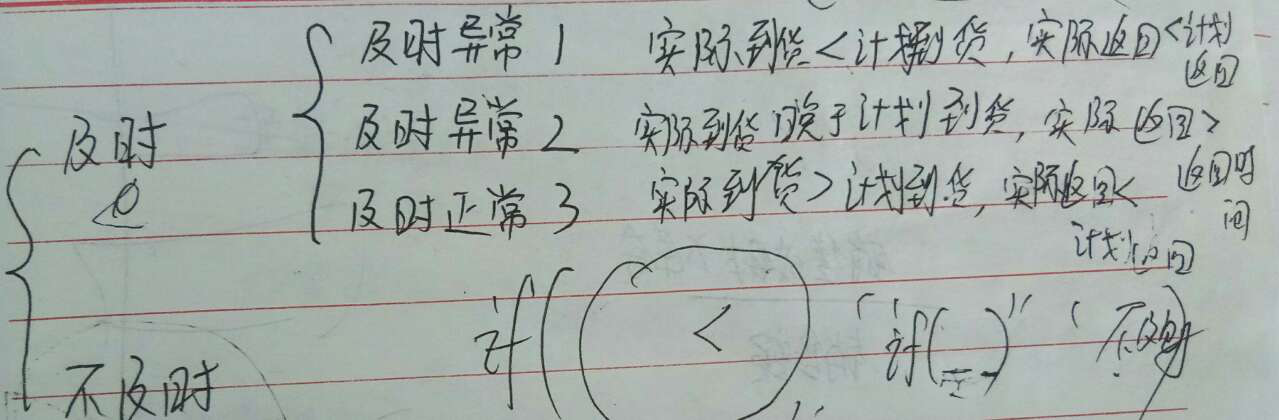 及时异常1 实际到货<计划到货,实际返回<计划返回
及时
及时异常2 实际到货晚于计划到货,实际返回>返回时间
及时正常3 实际到货>计划到货,实际返回<计划返回
if( ( < ) " if( ) " ( 不及时)
不及时